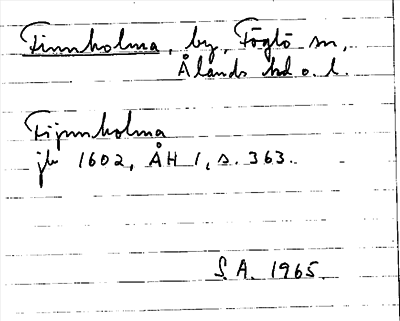 Finnholma, by, Föglö sn,
Ålands hd o. l.
Fijnnholma
jb 1602, ÅH 1, s. 363.
S.A. 1965.